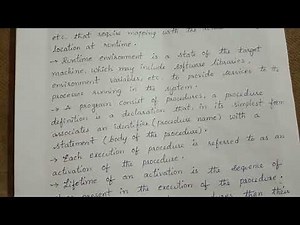 etc. that require mapping with the
location at runtime.
→ Runtime environment is a state of the target
machine, which may include software libraries,
environment variables etc. to provide services to the
processes running in the system.
→ A program consist of procedures, a procedure
definition is a declaration that, in its simplest form
associates an identifier (procedure name) with a
statement (body of the procedure).
→ Each execution of procedure is referred to as an
activation of the procedure.
→ Lifetime of an activation is the sequence of
present in the execution of the procedure.
then their